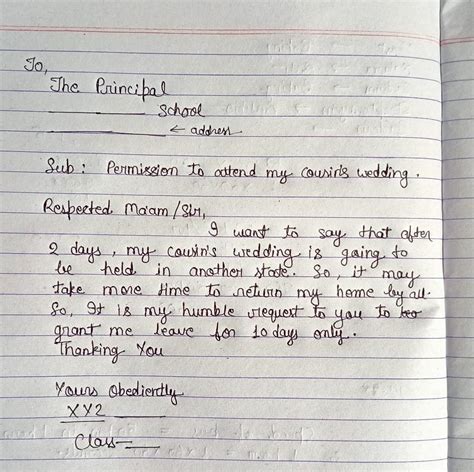 To,
The Principal
__________ School
__________ ← address
Sub : Permission to attend my cousin's wedding .
Respected Ma'am / Sir,
I want to say that after
2 days , my cousin's wedding is going to
be held in another state. So, it may
take more time to return my home by all.
So, It is my humble request to you to
grant me leave for 10 days only .
Thanking You
Yours Obediently
XYZ ______
Class-____